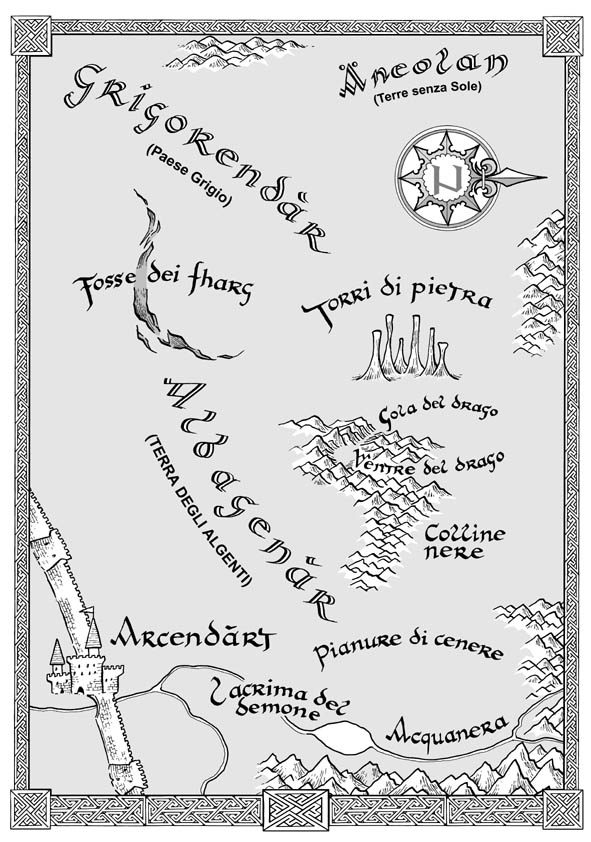 Äneolan
(Terre senza Sole)
Grigorendär
(Paese Grigio)
N
Fosse dei fharg
Torri di pietra
Gola del drago
Ventre del drago
Albagenär
(TERRA DEGLI ALGENTI)
Colline
nere
Arcendärt
Pianure di cenere
Lacrima del
demone
Acquanera